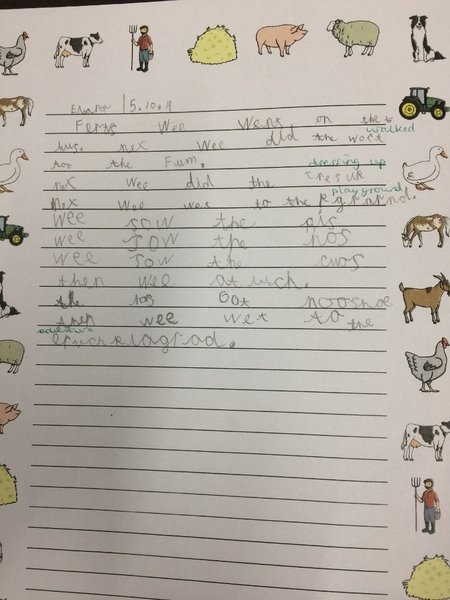 5.10.19
Ferrs wee went on the
bus. nex wee did the woct walked
too the Fum.
nex wee did the Tresup dressing up
nex wee wet to the pgrand. playground
wee sow the pis
wee sow the hos
wee sow the cuos
then wee at luch.
the hos Got nooshoe
then wee wet to the
adventure